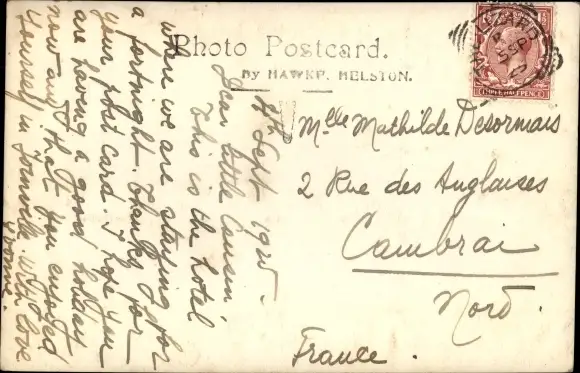 Photo Postcard.
By HAWKE. HELSTON.
4th Sept 1925.
Dear little Cousin
This is the hotel
where we are staying for
a fortnight. Thank you for
your post card. I hope you
are having a good holiday
now and that you enjoyed
yourself in Joinville. With love
Yvonne.
Mlle Mathilde Desormais
2 Rue des Anglaises
Cambrai
Nord.
France.
LIZARD
SP
THREE HALFPENCE